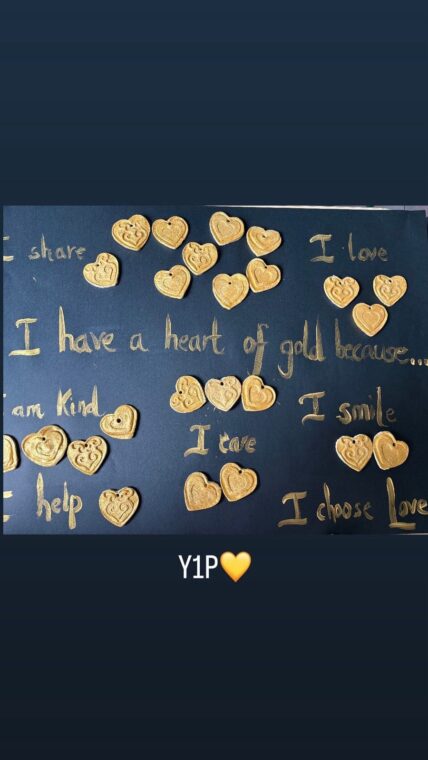 I share
I love
I have a heart of gold because...
I am Kind
I smile
I care
I help
I choose Love
Y1P💛